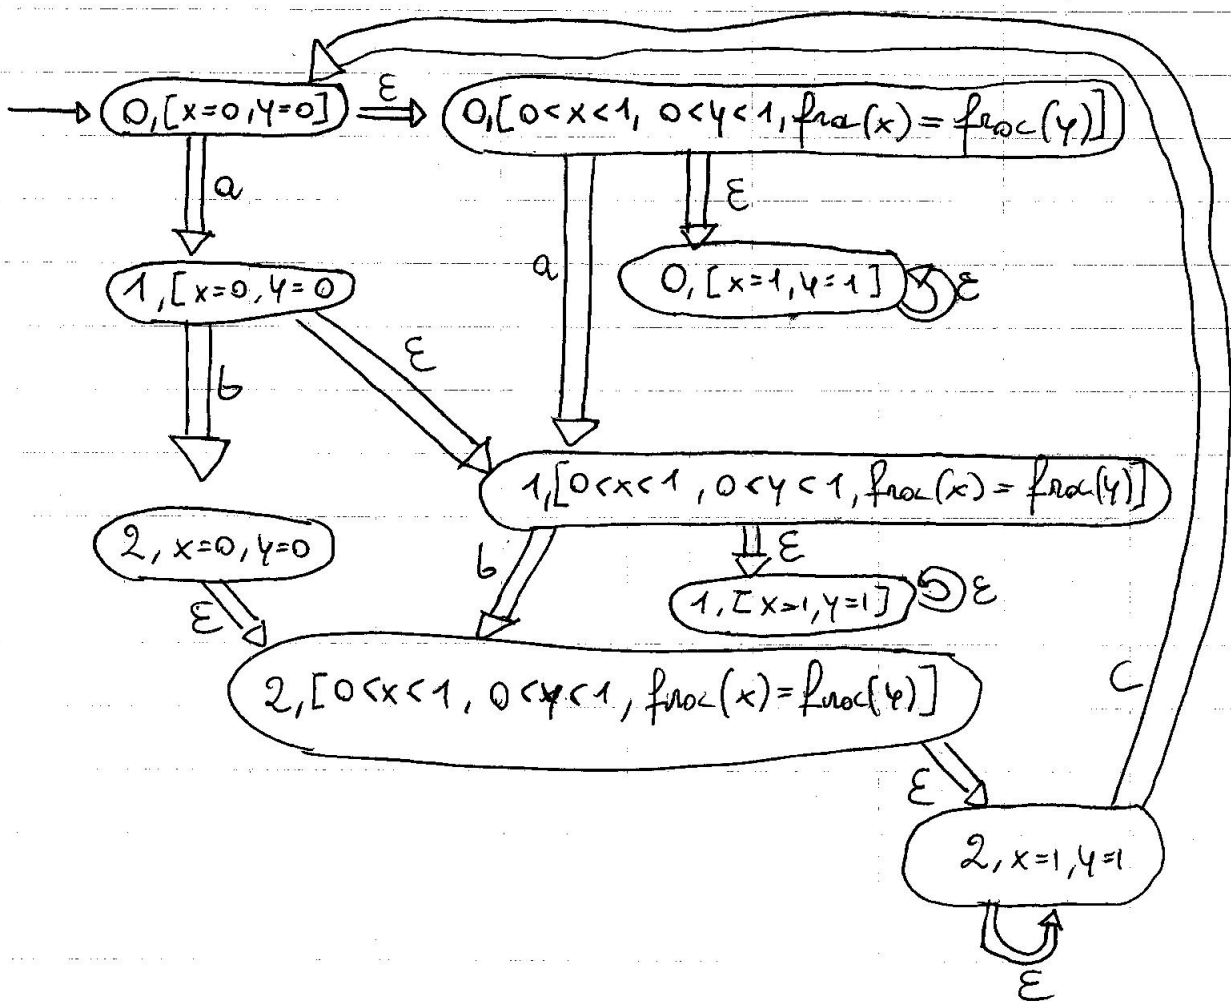 ε
0,[x=0,y=0]
0,[0<x<1, 0<y<1, frac(x)=frac(y)]
a
ε
a
0,[x=1,y=1]
ε
1,[x=0,y=0
ε
b
1,[0<x<1, 0<y<1, frac(x)=frac(y)]
2, x=0, y=0
b
ε
1,[x=1,y=1]
ε
ε
2,[0<x<1, 0<y<1, frac(x)=frac(y)]
c
ε
2, x=1, y=1
ε